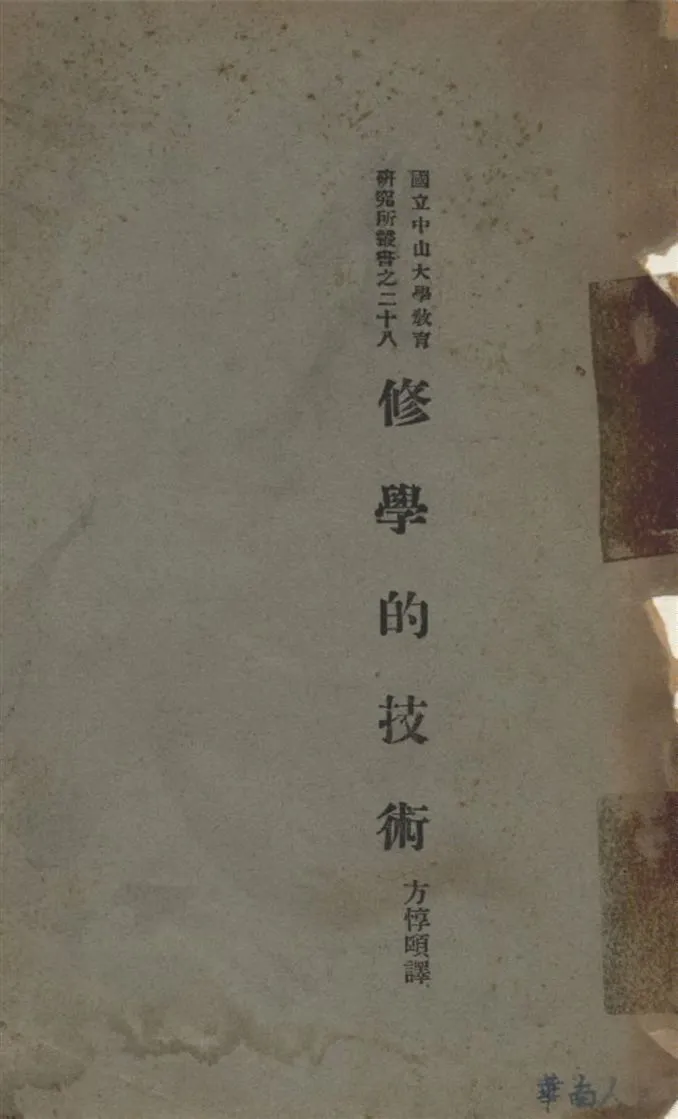 國立中山大學教育
硏究所叢書之二十八
修學的技術
方惇頤譯
華南人